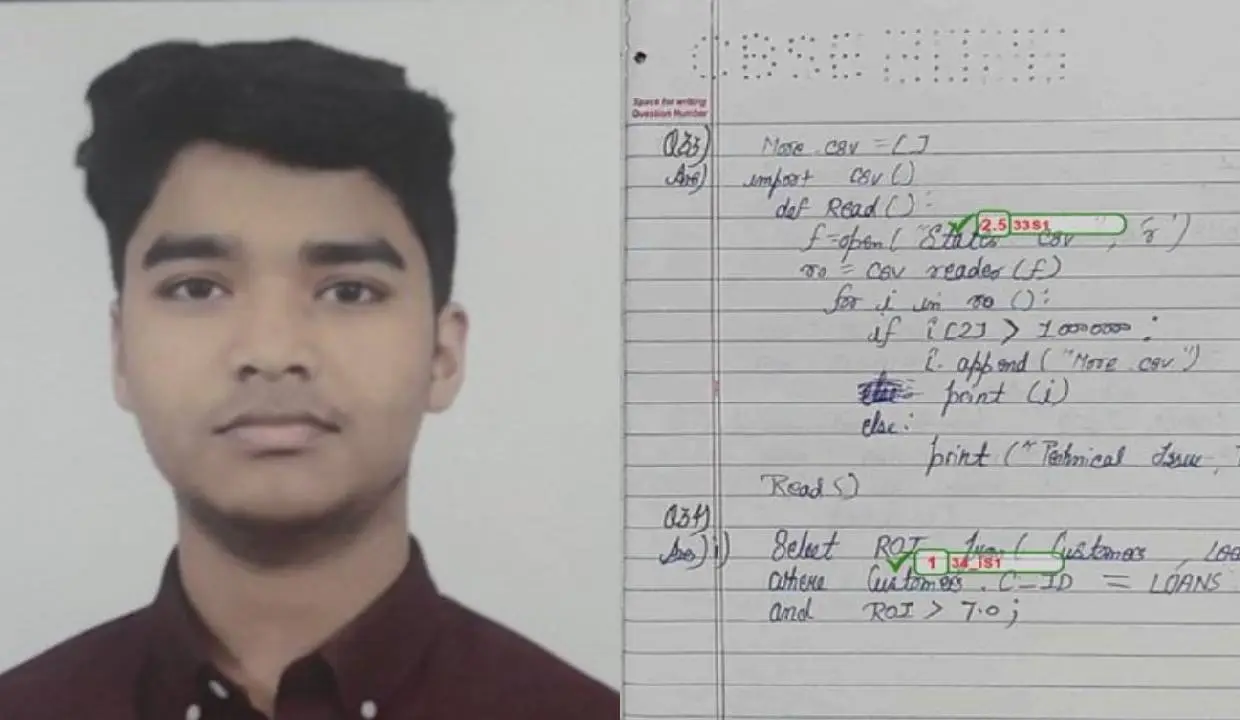 CBSE
Space for writing
Question Number
Q33) More csv = []
Ans) import csv()
def Read():
2.5 33S1
f=open("States csv", 'r')
ro = csv reader(f)
for i in ro ():
if i[2] > 1000000 :
i. append ("More csv")
print (i)
else:
print ("Technical Issue,
Read()
Q34)
Ans) i) Select ROI from ( Customers , Loa
1 34_iS1
where Customers . C-ID = LOANS
and ROI > 7.0 ;